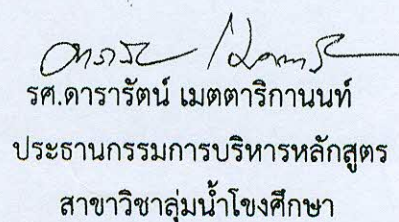 รศ.ดารารัตน์ เมตตาริกานนท์
ประธานกรรมการบริหารหลักสูตร
สาขาวิชาลุ่มน้ำโขงศึกษา